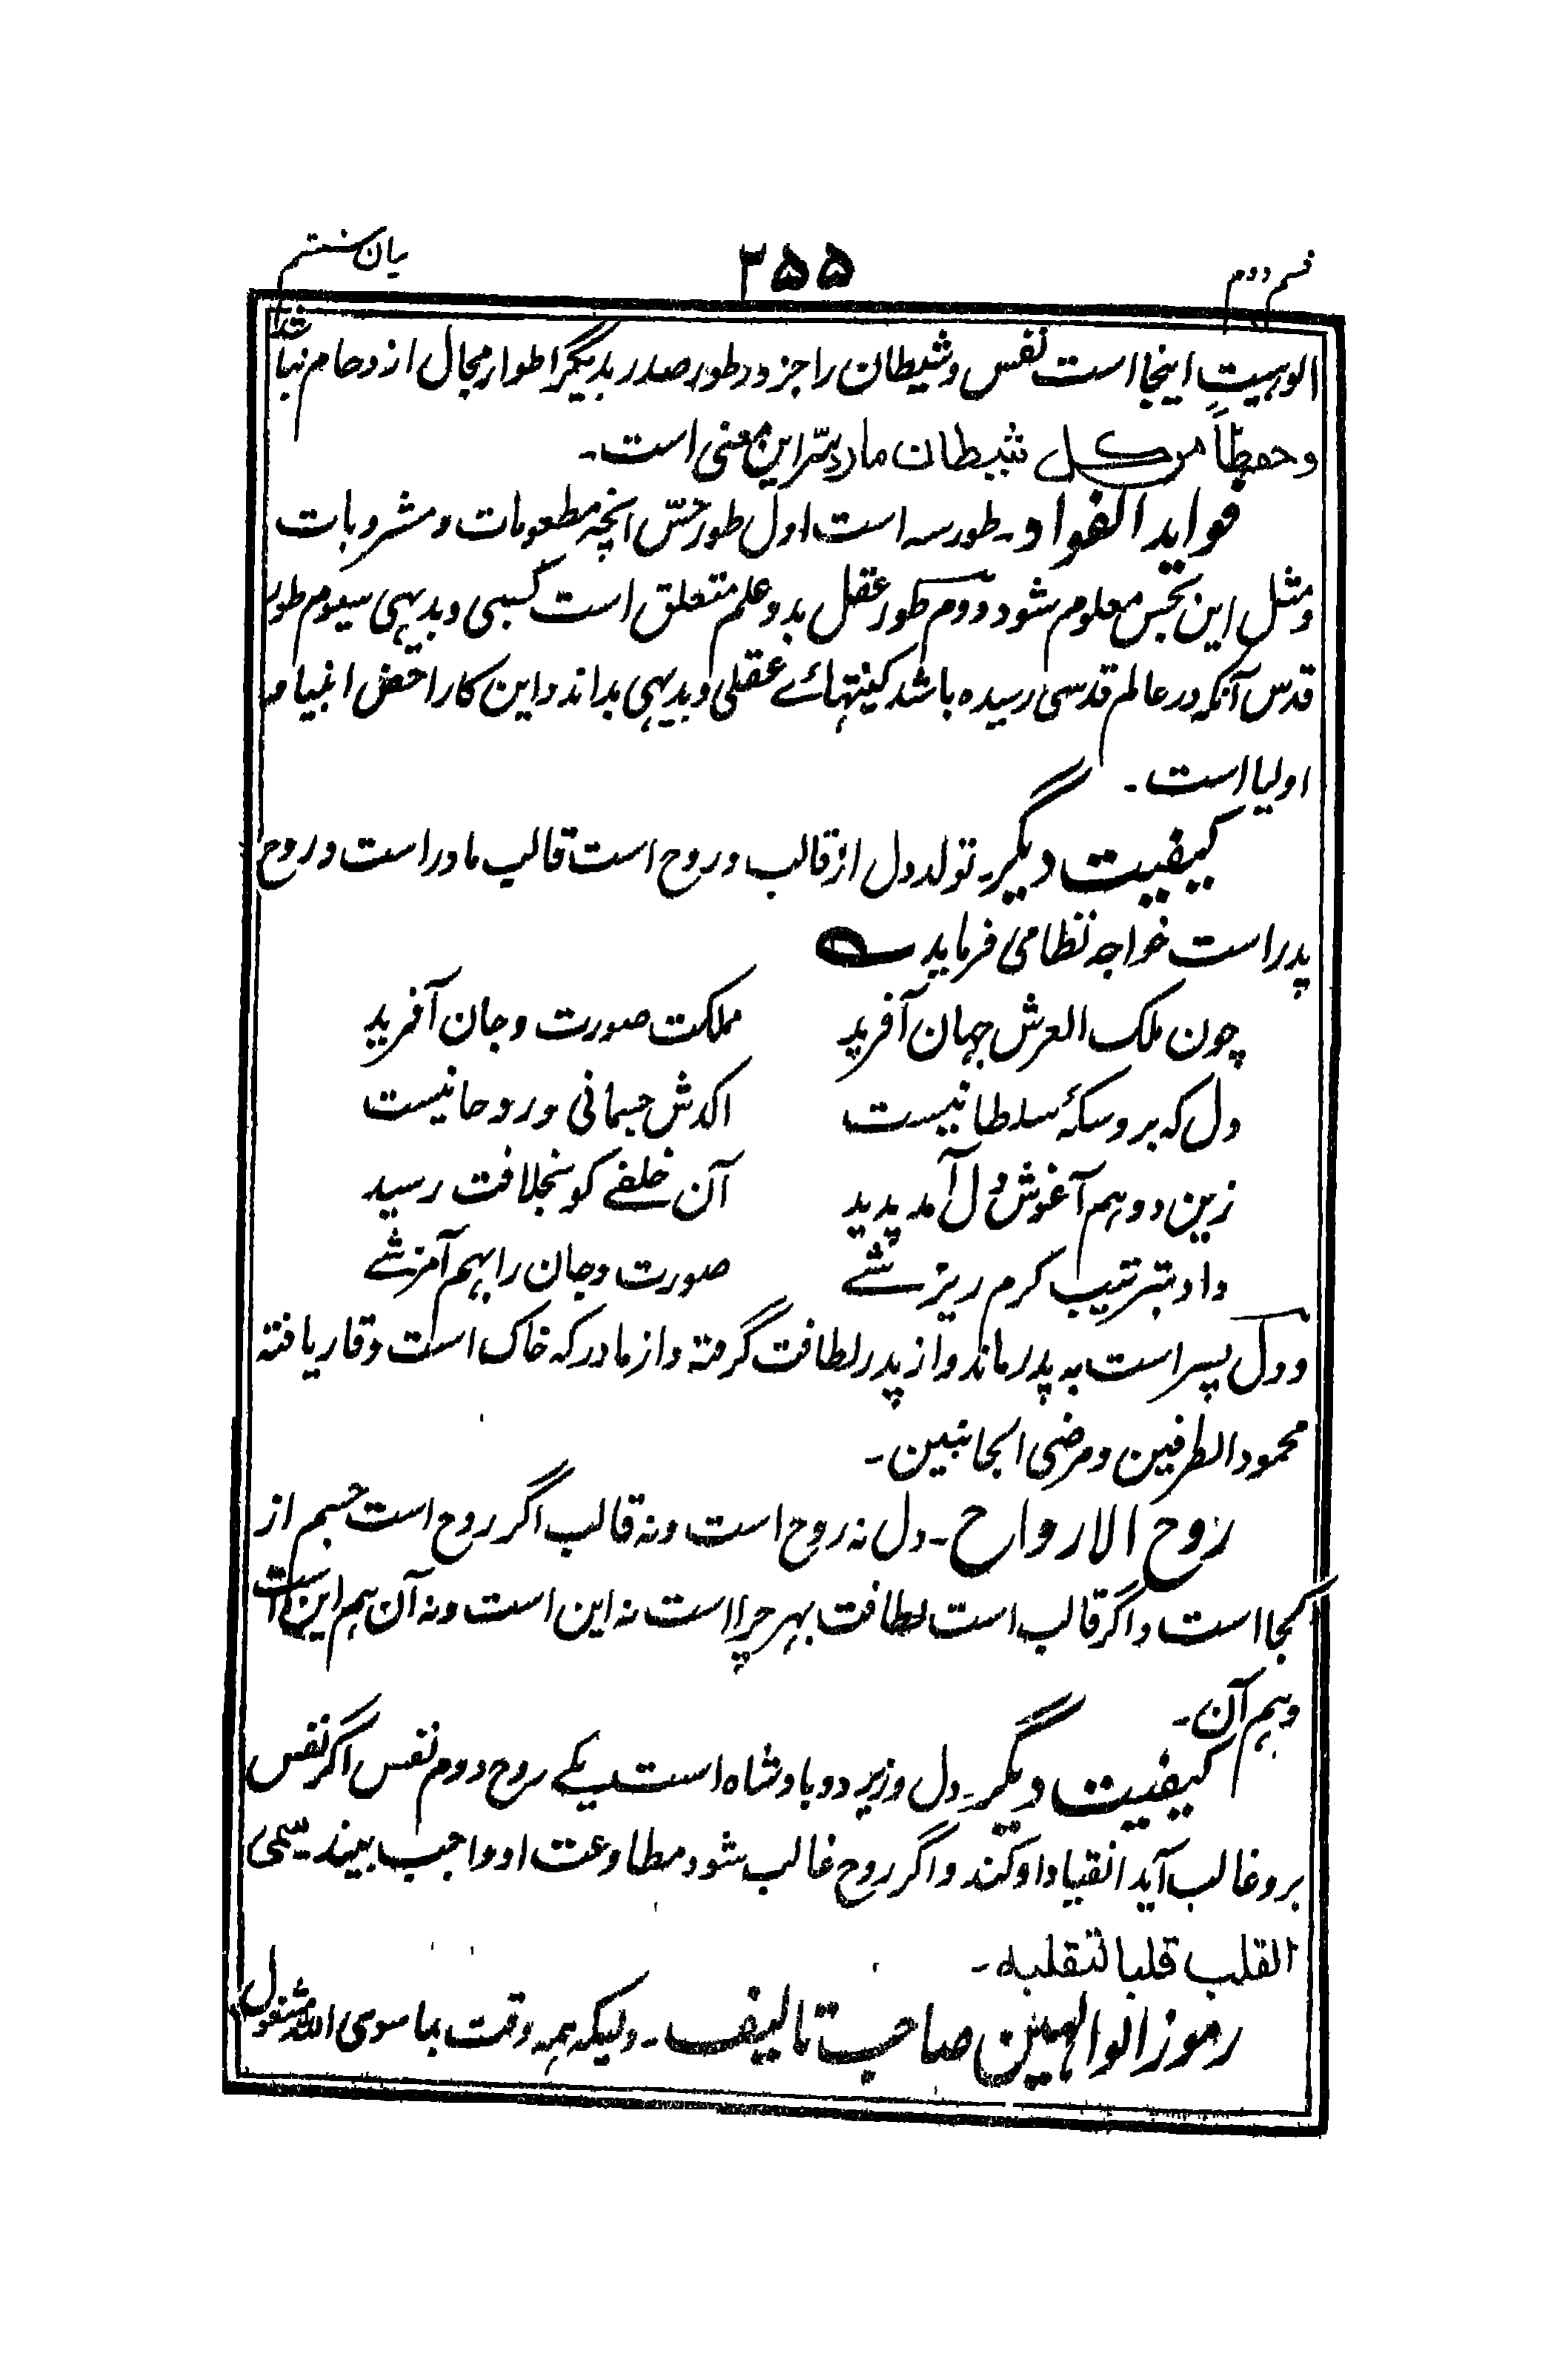 قسم دوم ۳۵۵ بیان ششم
الوہیتِ اینجا است نفس و شیطان را جز و در طور صدر بدیگر اطوار مجال ازدحام نباشد
و حفظاً من کل شیطان مارد سّر این معنی است۔
فواید الفواد۔ طور سہ است اول طور حسّ انچہ مطعومات و مشروبات
و مثل این بحس معلوم شود دوم طور عقل بدو علم متعلق است کسبی و بدیہی سیوم طور
قدس آنکہ در عالم قدسی رسیدہ باشد کیفیتہائے عقلی و بدیہی بداند و این کار احض انبیا و
اولیا است۔
کیفیت دیگر۔ تولد دل از قالب و روح است قالب مادر است و روح
پدر است خواجہ نظامی فرماید ؎
چون ملک العرش جہان آفرید مملکت صورت و جان آفرید
دل کہ برو سکۂ سلطانیست اکدش جسمانی و روحانیست
زین دو ہم آغوش دل آمد پدید آن خلفے کو بخلافت رسید
داد بترتیب کرم ریزشے صورت و جان را بہم آمزشے
و دل پسر است بہ پدر ماند و از پدر لطافت گرفتہ و از مادر کہ خاک است وقار یافتہ
محمود الطرفین و مرضی الجانبین۔
روح الارواح۔ دل نہ روح است و نہ قالب اگر روح است جسم از
کجا است و اگر قالب است لطافت بہر چرا است نہ این است و نہ آن ہم این است
و ہم آن۔
کیفیت دیگر۔ دل وزیر دو بادشاہ است یکے روح دوم نفس اگر نفس
برو غالب آید انقیاد او کند و اگر روح غالب شود مطاوعت او واجب بیند یسمی
القلب قلبا لتقلبہ۔
رموز الوالہین صاحب تالیف۔ دلیکہ ہمہ وقت بما سوی اللہ مشغول